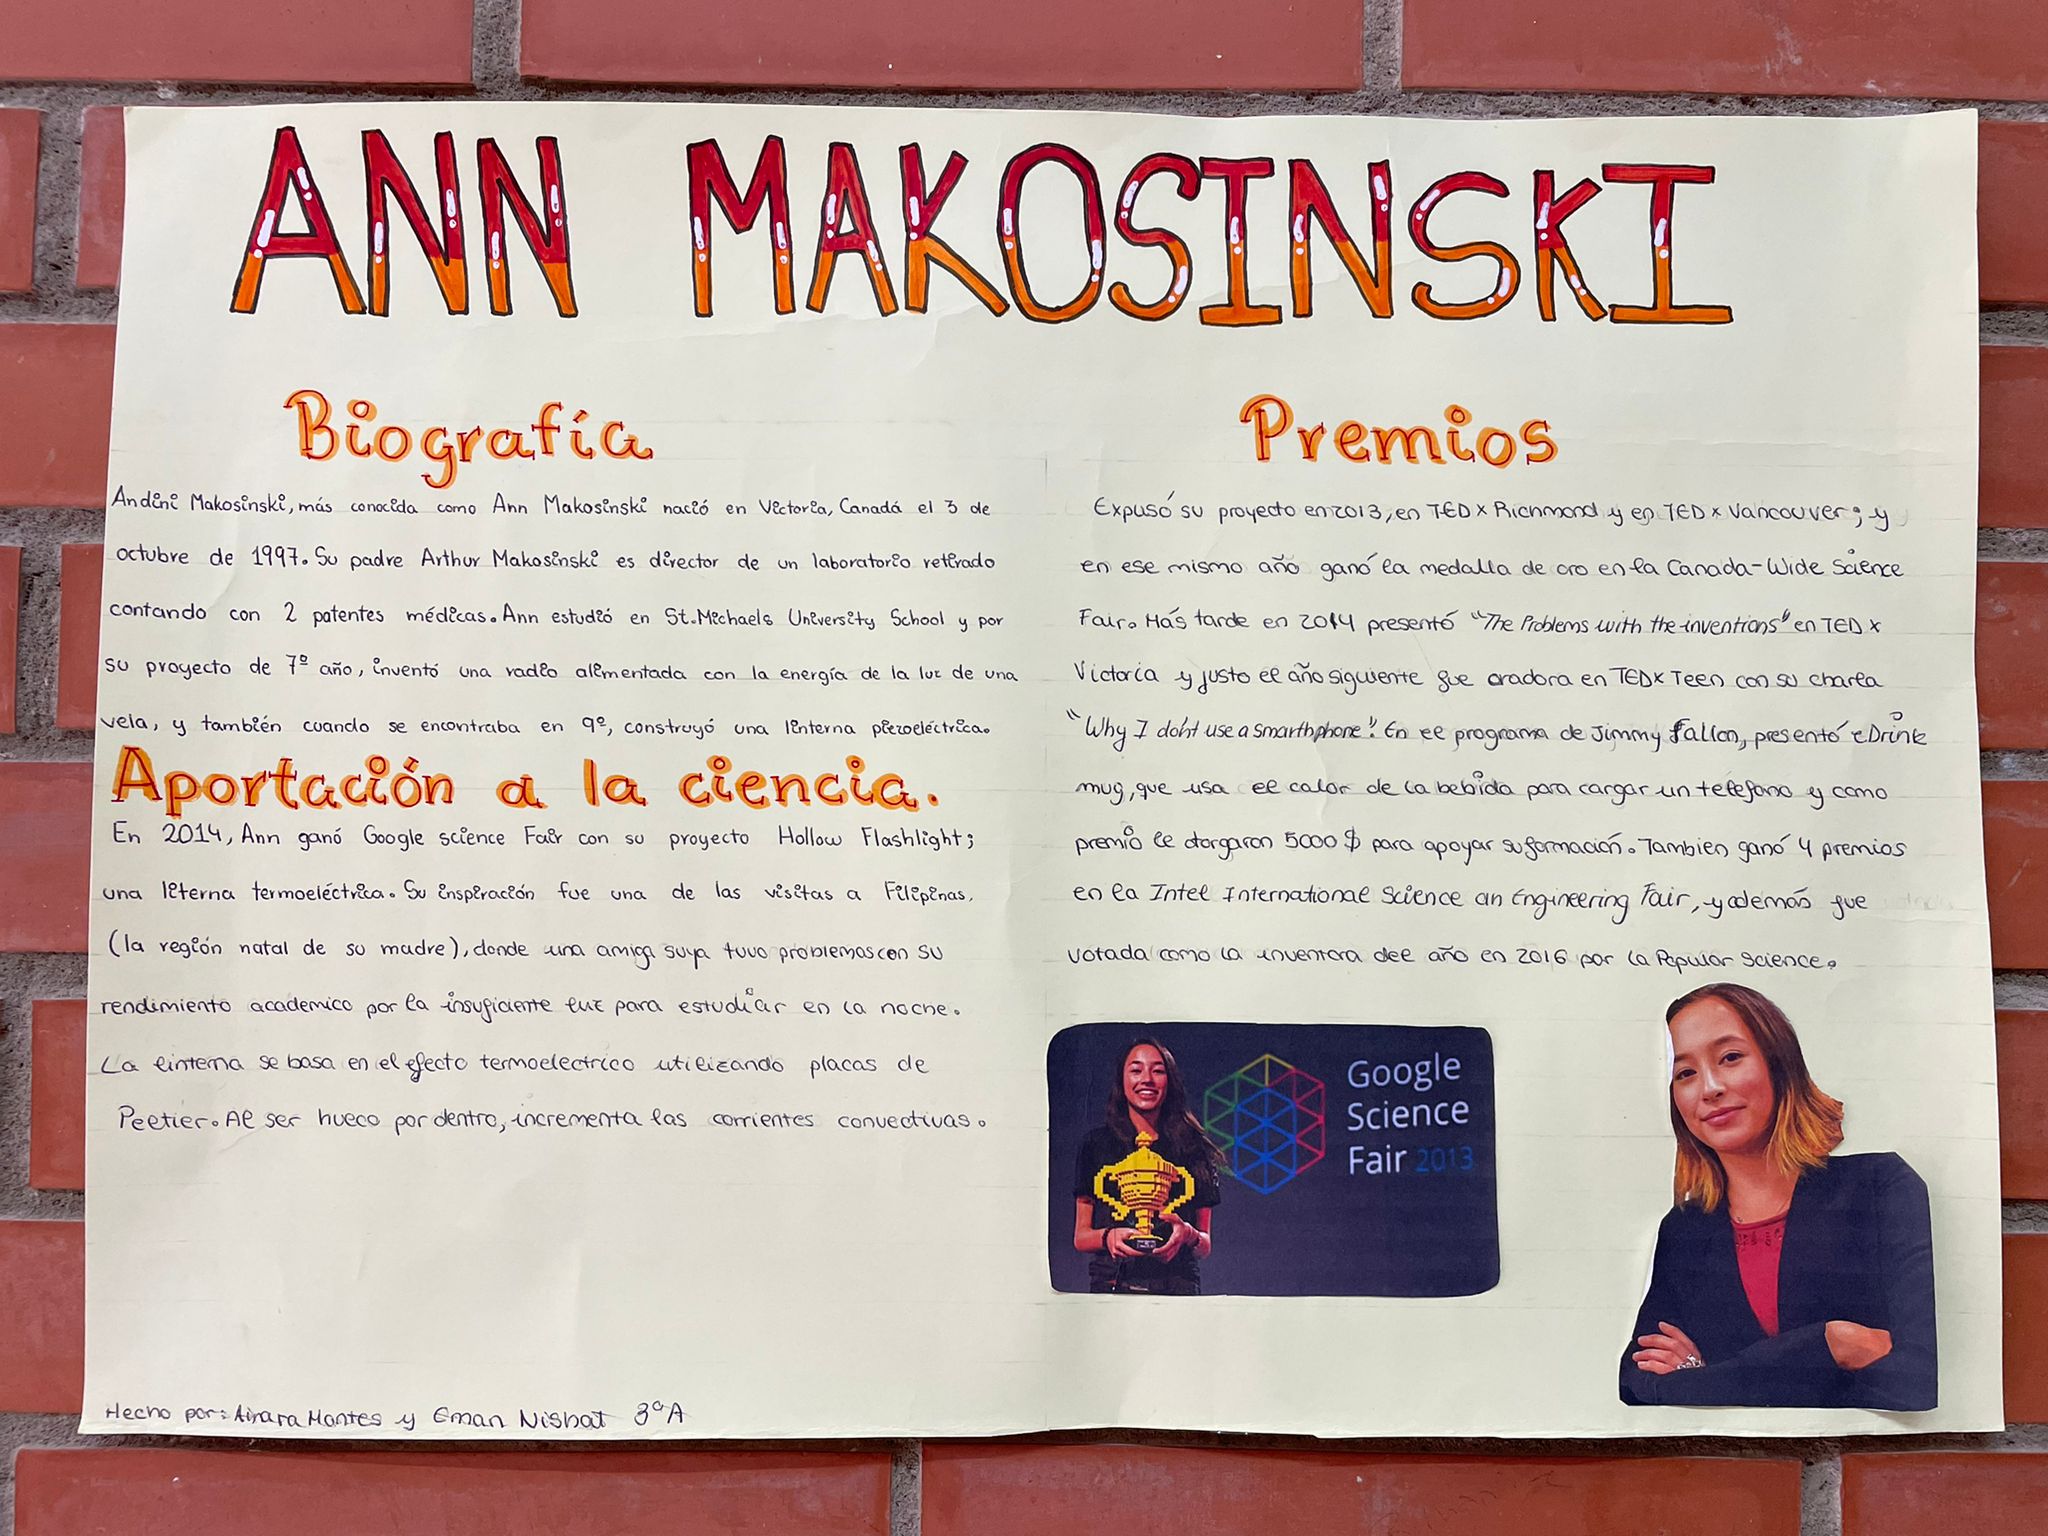 ANN MAKOSINSKI
Biografía
Andini Makosinski, más conocida como Ann Makosinski nació en Victoria, Canadá el 3 de
octubre de 1997. Su padre Arthur Makosinski es director de un laboratorio retirado
contando con 2 patentes médicas. Ann estudió en St. Michaels University School y por
su proyecto de 7º año, inventó una radio alimentada con la energía de la luz de una
vela, y también cuando se encontraba en 9º, construyó una linterna piezoeléctrica.
Aportación a la ciencia.
En 2014, Ann ganó Google science Fair con su proyecto Hollow Flashlight;
una literna termoeléctrica. Su inspiración fue una de las visitas a Filipinas,
(la región natal de su madre), donde una amiga suya tuvo problemas con su
rendimiento academico por la insuficiente luz para estudiar en la noche.
La linterna se basa en el efecto termoelectrico utilizando placas de
Peltier. Al ser hueco por dentro, incrementa las corrientes convectivas.
Hecho por: Ainara Montes y Eman Nishat 3ºA
Premios
Expusó su proyecto en 2013, en TED x Richmond y en TED x Vancouver; y
en ese mismo año ganó la medalla de oro en la Canada-Wide Science
Fair. Más tarde en 2014 presentó "The Problems with the inventions" en TED x
Victoria y justo el año siguiente fue oradora en TEDx Teen con su charla
"Why I don't use a smarthphone". En el programa de Jimmy Fallon, presentó eDrink
mug, que usa el calor de la bebida para cargar un teléfono y como
premio le otorgaron 5000 $ para apoyar su formación. Tambien ganó 4 premios
en la Intel International Science an Engineering Fair, y además fue
votada como la inventora del año en 2016 por la Popular Science.
Google
Science
Fair 2013